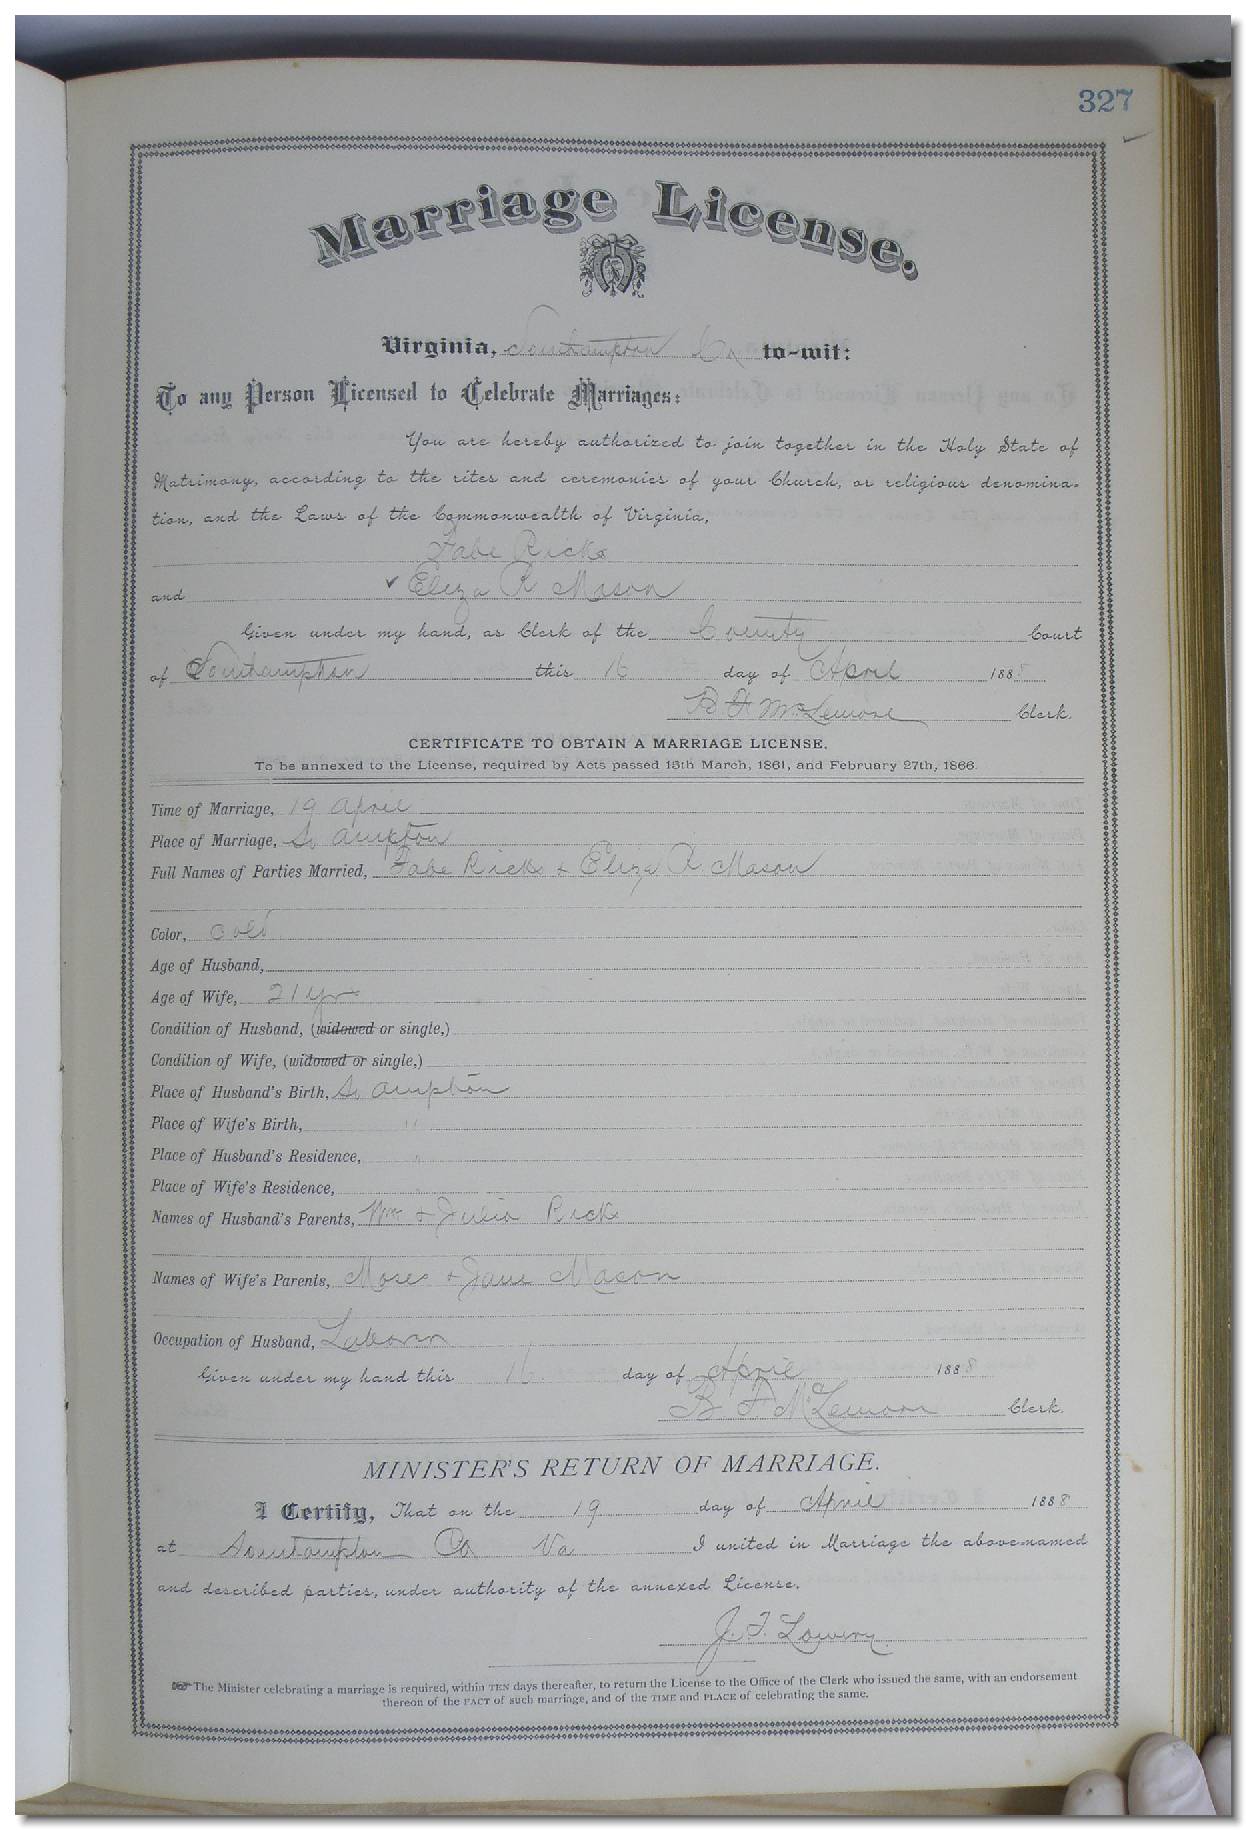 327
Marriage License.
Virginia, Southampton Co to-wit:
To any Person Licensed to Celebrate Marriages:
You are hereby authorized to join together in the Holy State of
Matrimony, according to the rites and ceremonies of your Church, or religious denomina-
tion, and the Laws of the Commonwealth of Virginia,
Fabe Ricks
and Eliza R Mason
Given under my hand, as Clerk of the County Court
of Southampton this 16 day of April 1888
B F McLemore Clerk.
CERTIFICATE TO OBTAIN A MARRIAGE LICENSE.
To be annexed to the License, required by Acts passed 15th March, 1861, and February 27th, 1866.
Time of Marriage, 19 April
Place of Marriage, So ampton
Full Names of Parties Married, Fabe Ricks + Eliza R. Mason
Color, Cold
Age of Husband,
Age of Wife, 21 yrs
Condition of Husband, (widowed or single,)
Condition of Wife, (widowed or single,)
Place of Husband's Birth, So ampton
Place of Wife's Birth, "
Place of Husband's Residence, "
Place of Wife's Residence, "
Names of Husband's Parents, Wm + Julia Ricks
Names of Wife's Parents, Moses + Jane Mason
Occupation of Husband, Laborer
Given under my hand this 16 day of April 1888
B F McLemore Clerk.
MINISTER'S RETURN OF MARRIAGE.
I Certify, That on the 19 day of April 1888
at Southampton Co Va I united in Marriage the above-named
and described parties, under authority of the annexed License.
J. F. Lowery
The Minister celebrating a marriage is required, within TEN days thereafter, to return the License to the Office of the Clerk who issued the same, with an endorsement
thereon of the FACT of such marriage, and of the TIME and PLACE of celebrating the same.